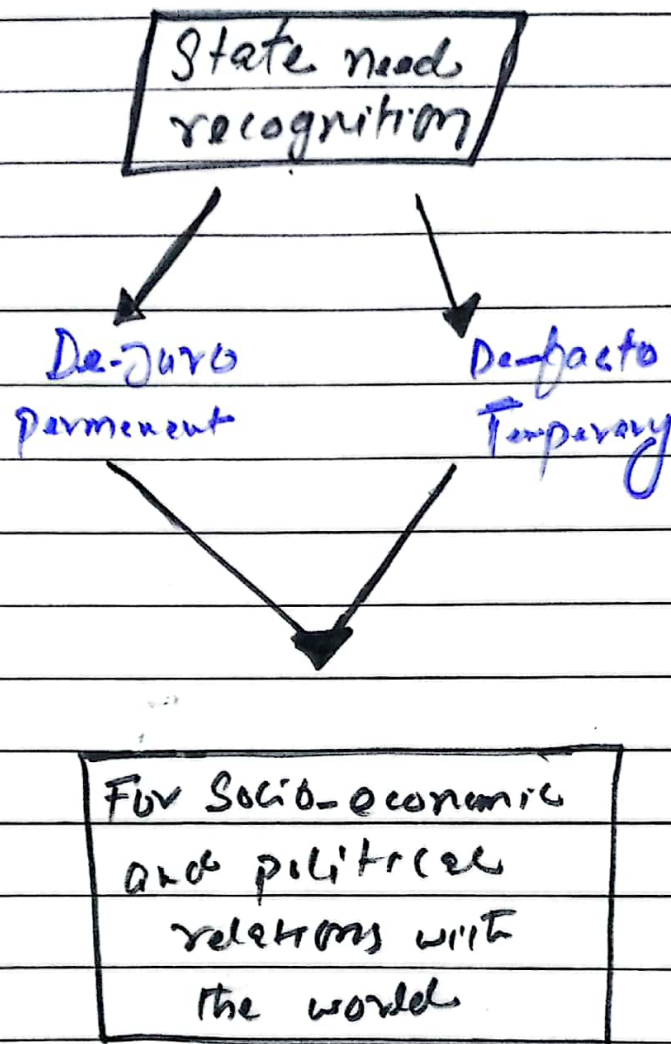 State need
recognition
De-Juro
De-facto
permenent
Temperary
For Socio-economic
and political
relations with
the world